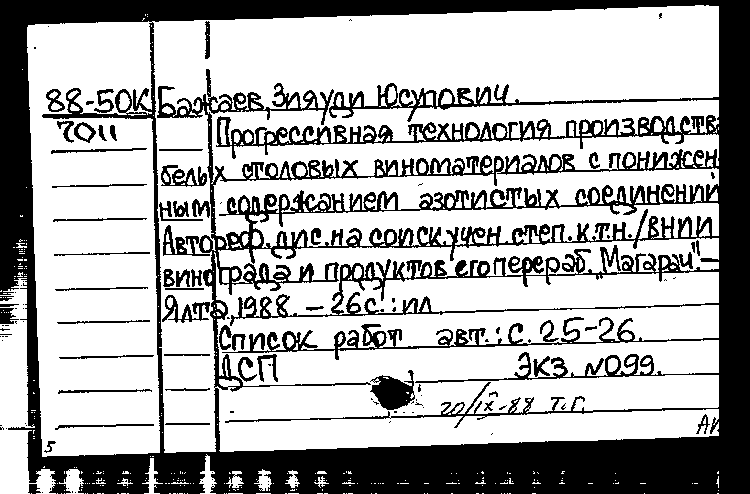 88-50К Бажаев, Зияуди Юсупович.
7011 Прогрессивная технология производства
белых столовых виноматериалов с понижен
ным содержанием азотистых соединений
Автореф. дис. на соиск. учен. степ. к.т.н. / ВНИИ
винограда и продуктов его перераб. "Магарач". —
Ялта, 1988. — 26 с. : ил
Список работ авт.: с. 25-26.
ДСП Экз. N099.
20/IX-88 Т.Г.
5